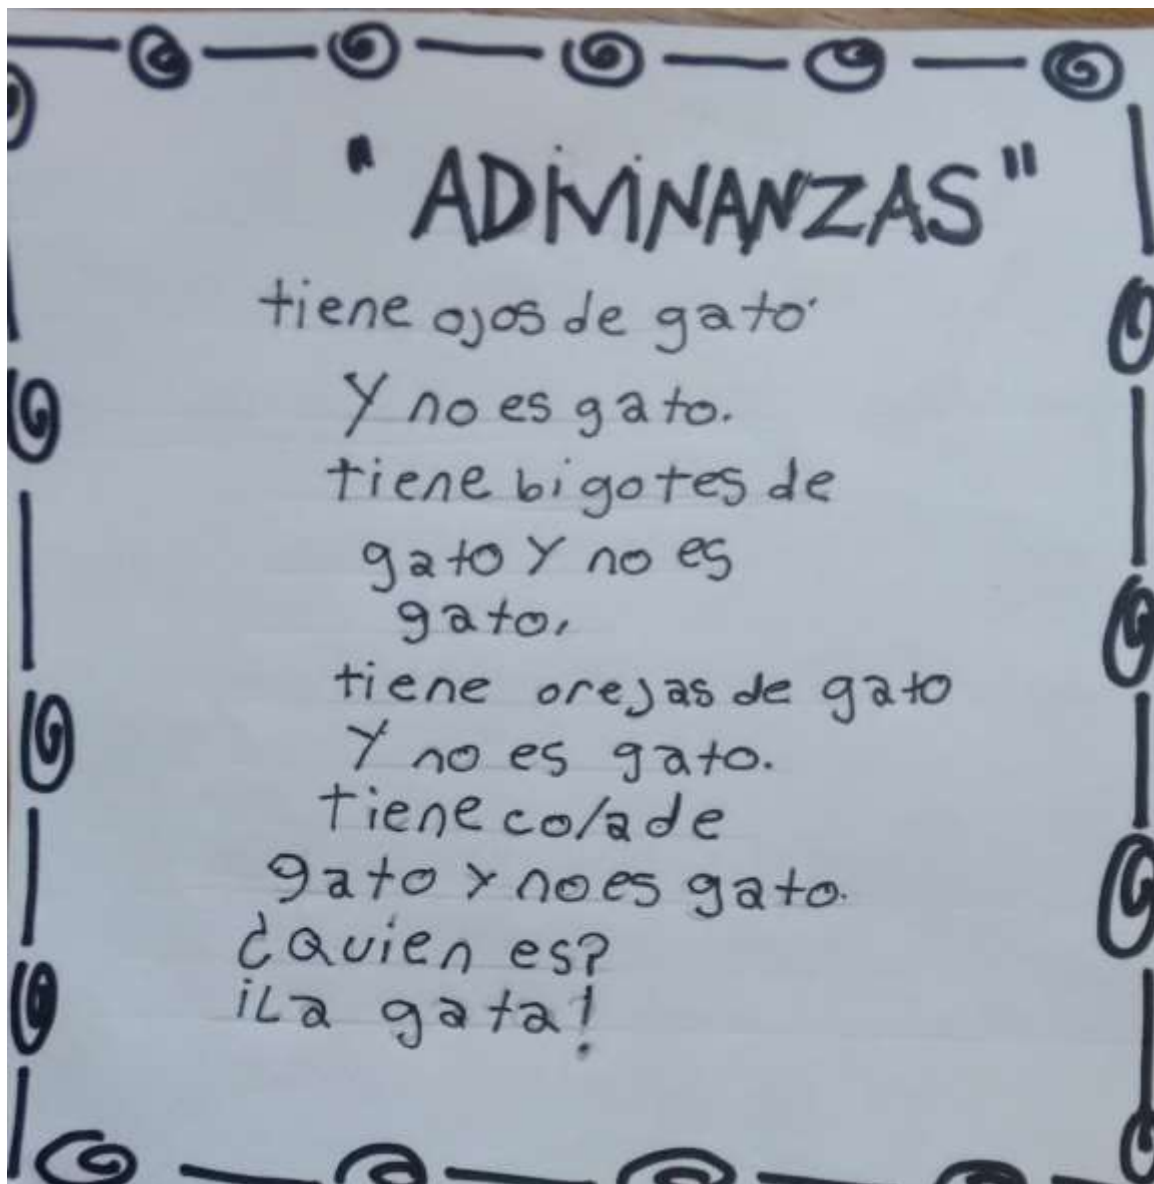 "ADIVINANZAS"
tiene ojos de gato
Y no es gato.
tiene bigotes de
gato Y no es
gato,
tiene orejas de gato
Y no es gato.
tiene cola de
gato y no es gato.
¿Quien es?
¡La gata!